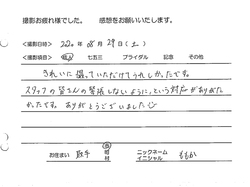 撮影お疲れ様でした。 感想をお願いいたします。
<撮影日時> 2020年 08月 29日 (土)
<撮影項目> 七五三 ブライダル 記念 その他
きれいに撮っていただけてうれしかったです。
スタッフの皆さんの緊張しないように、という対応がありがた
かったです。ありがとうございました
お住まい 取手 市 町 村 ニックネーム イニシャル ももか